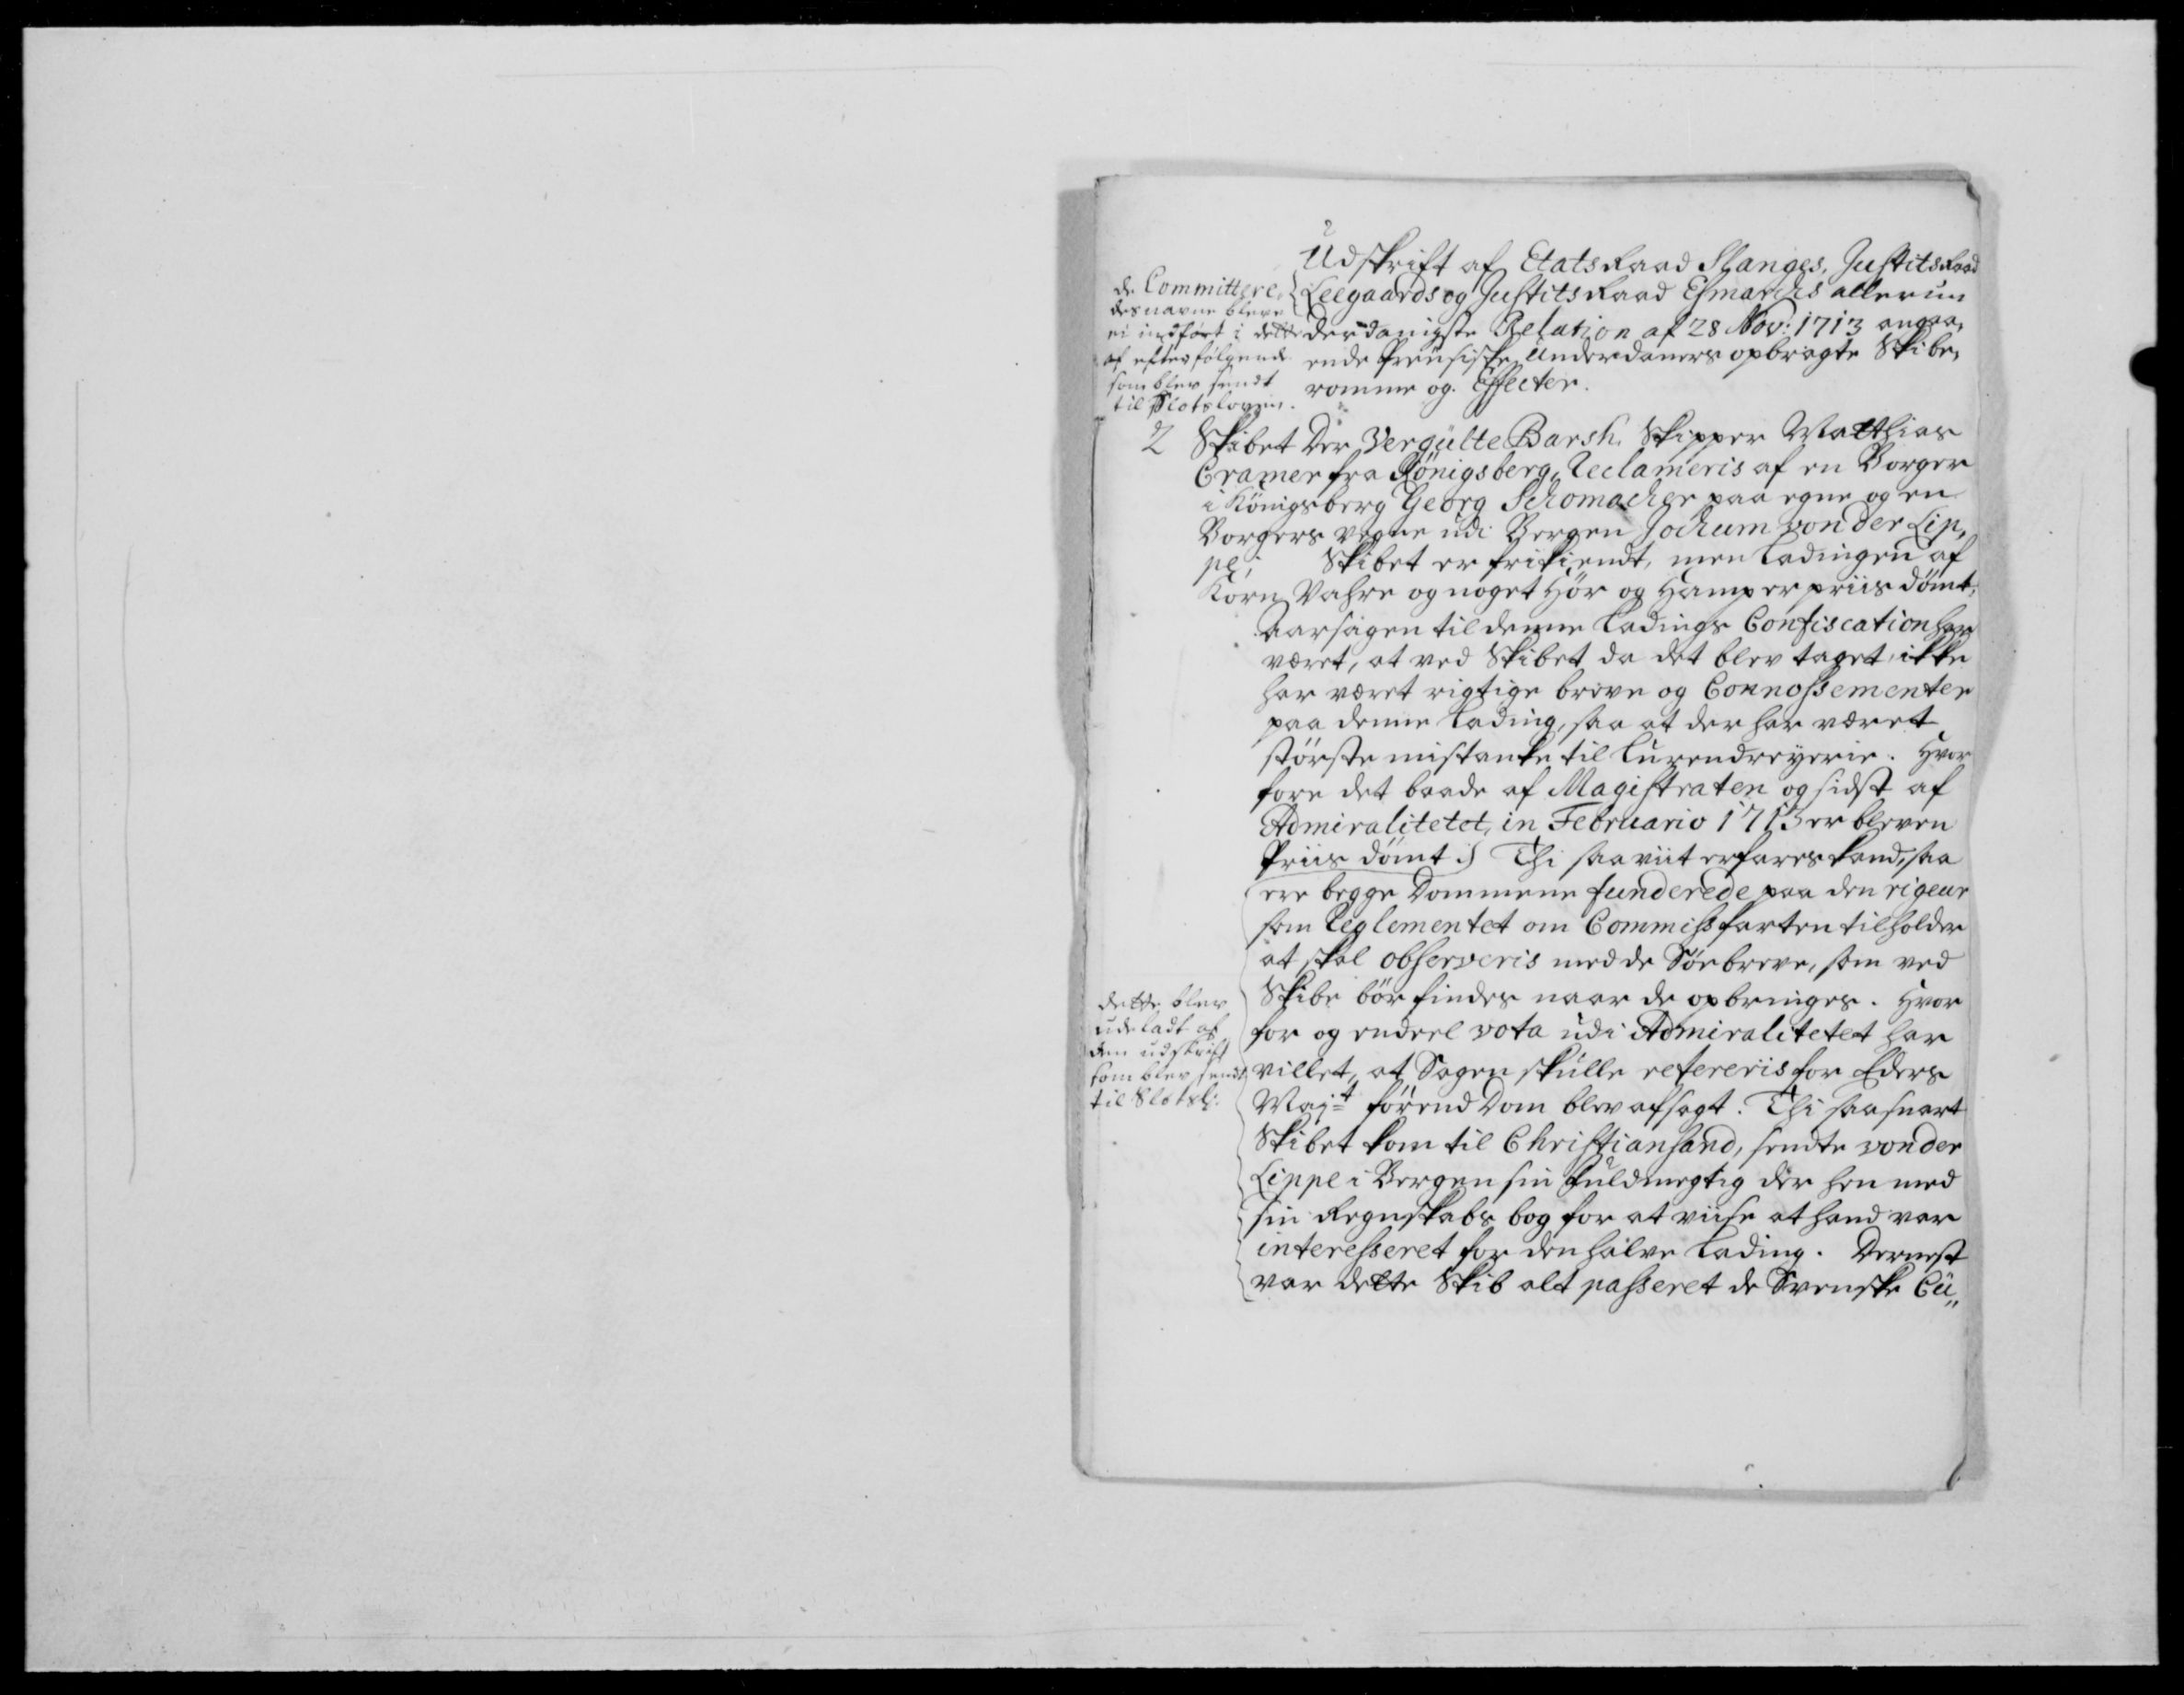 Udskrift af Etats Raad Slanges, Justits Raad
Leegaards og Justits Raad Esmarchs allerun
derdanigste Relation af 28 Nov: 1713 angaa,
ende Preusiske Underdaners opbragte Skibe,
romme og Effecter.
de Committere,
des navne bleve
ei indført i dette
af efterfølgende
som blev sendt
til Slotsloven.
2 Skibet Der Vergülte Barsk, Skipper Matthias
Cramer fra Königsberg, Reclameris af en Borger
i Königsberg Georg Schomacher paa egne og en
Borgers vegne udi Bergen Jochum von der Lip,
pe; Skibet er frikiendt, men Ladingen af
Korn Vahre og noget Hör og Hamp er priis dömt;
Aarsagen til denne Ladings Confiscation har
været, at ved Skibet da det blev taget, ikke
har været rigtige breve og Connossementer
paa denne Lading, saa at der har været
störste mistanke til Lurendreyerie. Hvor
fore det baade af Magistraten og sidst af
Admiralitetet, in Februario 1713 er bleven
Priis dömt :) Thi saa viit erfares kand, saa
ere begge Dommene funderede paa den rigeur
som Reglementet om Commissfarten tilholder
at skal observeris med de Söebreve, som ved
Skibe bör findes naar de opbringes. Hvor
for og endeel vota udi Admiralitetet har
villet, at Sagen skulle refereris for Eders
Majt förend Dom blev afsagt. Thi saa snart
Skibet kom til Christiansand, sendte von der
Lippe i Bergen sin fuldmegtig der hen med
sin Regnskabs bog for at viise at hand var
interesseret for den halve Lading. Dernest
var dette Skib alt passeret de Svenske Cü,,
dette blev
udeladt af
den udskrift
som blev sendt
til Slotsl: